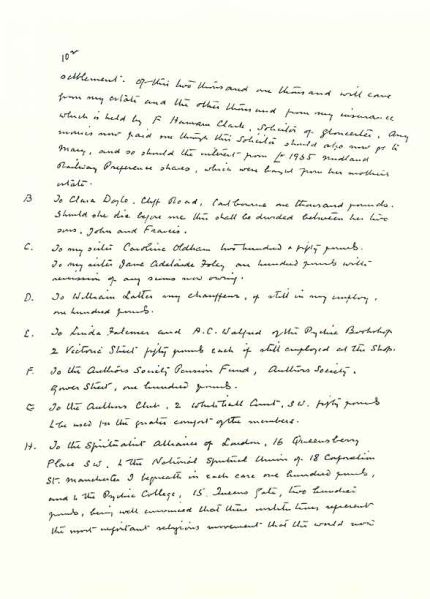 settlement. Of this two thousand one thousand will come
from my estate and the other thousand from my insurance
which is held by F Harman Clarke, Solicitor of Gloucester. Any
monies now paid me through this Solicitor should also now go to
Mary, and so should the interest from £ 1955 Midland
Railway Preference shares, which were bought from her mothers
estate.
B To Clara Doyle, Cliff Road, one thousand pounds.
Should she die before me this shall be divided between her two
sons, John and Francis.
C. To my sister Caroline Oldham two hundred & fifty pounds.
To my sister Jane Adelaide Foley one hundred pounds with
remission of any sums now owing.
D. To William Latter my chauffeur, if still in my employ,
one hundred pounds.
E. To Linda Falconer and A.C. Walford of the Psychic Bookshop
2 Victoria Street fifty pounds each if still employed at the Shop.
F. To the Authors Society Pension Fund, Authors Society,
Gower Street, one hundred pounds.
G To the Authors Club, 2 Whitehall Court, S.W. fifty pounds
to be used for the greater comfort of the members.
H. To the Spiritualist Alliance of London, 16 Queensberry
Place S.W. & the National Spiritual Union of 18 Corporation
St. Manchester I bequeath in each case one hundred pounds,
and to the Psychic College, 15. Queens Gate, two hundred
pounds, being well convinced that these institutions represent
the most important religious movement that the world now